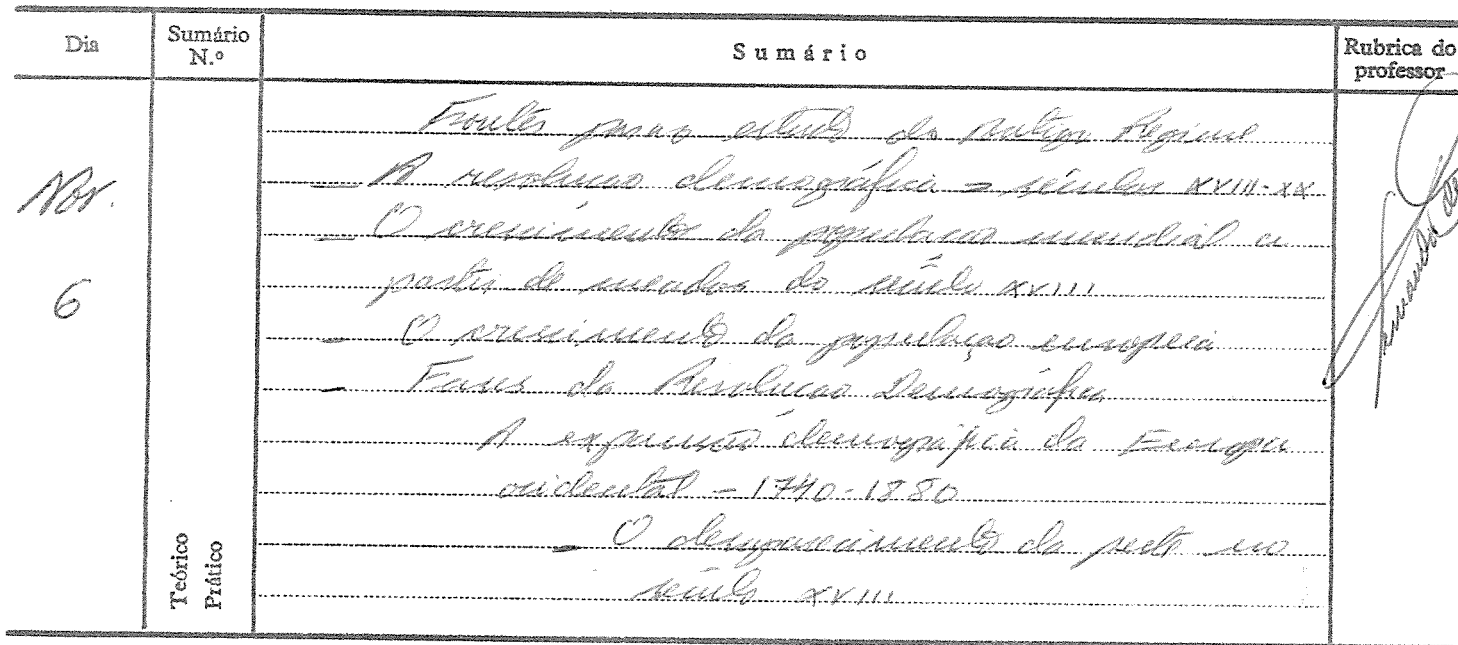 Dia
Sumário N.º
Sumário
Rubrica do professor
Nov.
6
Teórico
Prático
Fontes para o estudo do Antigo Regime
– A revolução demográfica – séculos XVIII-XX
– O crescimento da população mundial a
partir de meados do século XVIII
– O crescimento da população europeia
– Fases da Revolução Demográfica
A expansão demográfica da Europa
ocidental – 1740-1880
– O desaparecimento da peste no
século XVIII